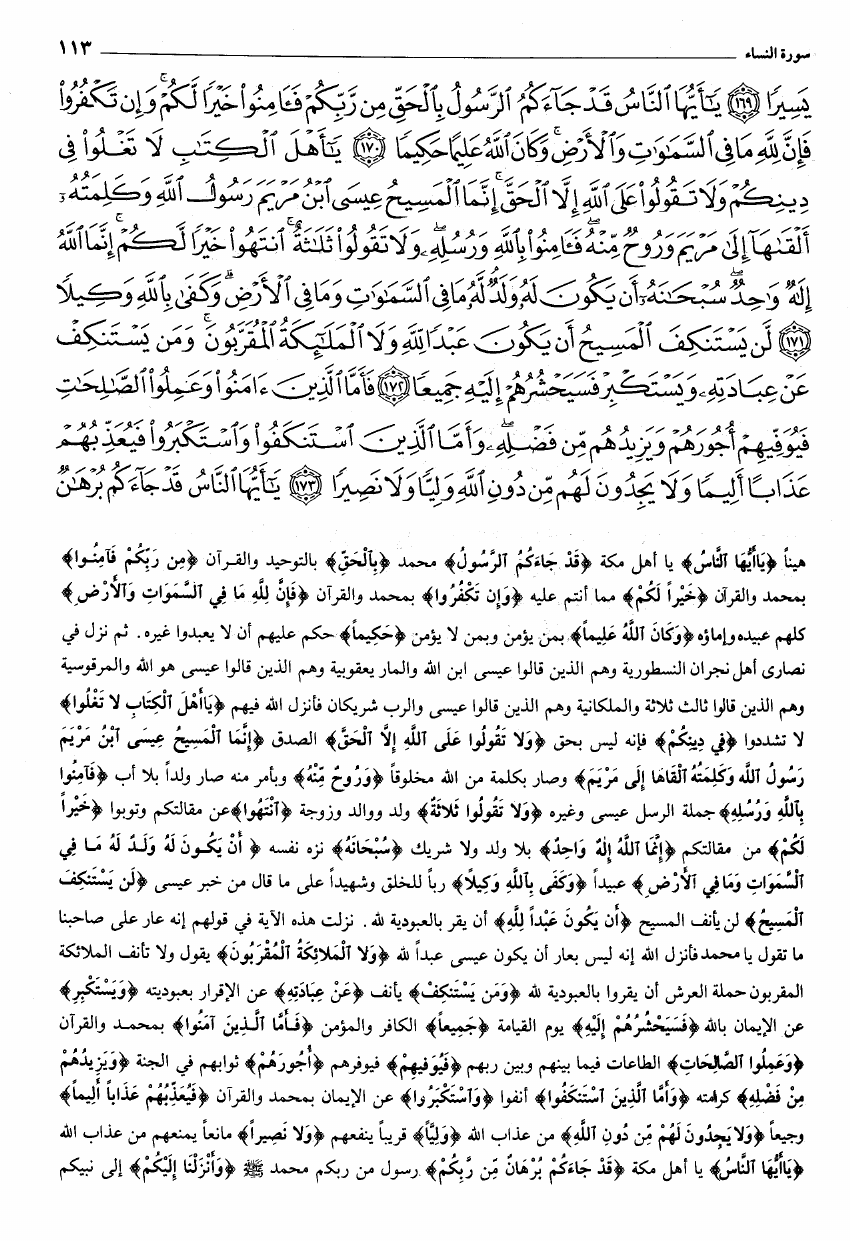 سورة النساء ١١٣
يَسِيرًا ﴿١٦٩﴾ يَٰٓأَيُّهَا ٱلنَّاسُ قَدْ جَآءَكُمُ ٱلرَّسُولُ بِٱلْحَقِّ مِن رَّبِّكُمْ فَـَٔامِنُوا۟ خَيْرًا لَّكُمْ ۚ وَإِن تَكْفُرُوا۟
فَإِنَّ لِلَّهِ مَا فِى ٱلسَّمَٰوَٰتِ وَٱلْأَرْضِ ۚ وَكَانَ ٱللَّهُ عَلِيمًا حَكِيمًا ﴿١٧٠﴾ يَٰٓأَهْلَ ٱلْكِتَٰبِ لَا تَغْلُوا۟ فِى
دِينِكُمْ وَلَا تَقُولُوا۟ عَلَى ٱللَّهِ إِلَّا ٱلْحَقَّ ۚ إِنَّمَا ٱلْمَسِيحُ عِيسَى ٱبْنُ مَرْيَمَ رَسُولُ ٱللَّهِ وَكَلِمَتُهُۥٓ
أَلْقَىٰهَآ إِلَىٰ مَرْيَمَ وَرُوحٌ مِّنْهُ ۖ فَـَٔامِنُوا۟ بِٱللَّهِ وَرُسُلِهِۦ ۖ وَلَا تَقُولُوا۟ ثَلَٰثَةٌ ۚ ٱنتَهُوا۟ خَيْرًا لَّكُمْ ۚ إِنَّمَا ٱللَّهُ
إِلَٰهٌ وَٰحِدٌ ۖ سُبْحَٰنَهُۥٓ أَن يَكُونَ لَهُۥ وَلَدٌ ۘ لَّهُۥ مَا فِى ٱلسَّمَٰوَٰتِ وَمَا فِى ٱلْأَرْضِ ۗ وَكَفَىٰ بِٱللَّهِ وَكِيلًا
﴿١٧١﴾ لَّن يَسْتَنكِفَ ٱلْمَسِيحُ أَن يَكُونَ عَبْدًا لِّلَّهِ وَلَا ٱلْمَلَٰٓئِكَةُ ٱلْمُقَرَّبُونَ ۚ وَمَن يَسْتَنكِفْ
عَنْ عِبَادَتِهِۦ وَيَسْتَكْبِرْ فَسَيَحْشُرُهُمْ إِلَيْهِ جَمِيعًا ﴿١٧٢﴾ فَأَمَّا ٱلَّذِينَ ءَامَنُوا۟ وَعَمِلُوا۟ ٱلصَّٰلِحَٰتِ
فَيُوَفِّيهِمْ أُجُورَهُمْ وَيَزِيدُهُم مِّن فَضْلِهِۦ ۖ وَأَمَّا ٱلَّذِينَ ٱسْتَنكَفُوا۟ وَٱسْتَكْبَرُوا۟ فَيُعَذِّبُهُمْ
عَذَابًا أَلِيمًا وَلَا يَجِدُونَ لَهُم مِّن دُونِ ٱللَّهِ وَلِيًّا وَلَا نَصِيرًا ﴿١٧٣﴾ يَٰٓأَيُّهَا ٱلنَّاسُ قَدْ جَآءَكُم بُرْهَٰنٌ
هيناً ﴿يَاأَيُّهَا ٱلنَّاسُ﴾ يا أهل مكة ﴿قَدْ جَاءَكُمُ ٱلرَّسُولُ﴾ محمد ﴿بِٱلْحَقِّ﴾ بالتوحيد والقرآن ﴿مِن رَبِّكُمْ فَآمِنُوا﴾
بمحمد والقرآن ﴿خَيْراً لَكُمْ﴾ مما أنتم عليه ﴿وَإِن تَكْفُرُوا﴾ بمحمد والقرآن ﴿فَإِنَّ لِلَّهِ مَا فِي ٱلسَّمَوَاتِ وَٱلأَرْضِ﴾
كلهم عبيده وإماؤه ﴿وَكَانَ ٱللَّهُ عَلِيماً﴾ بمن يؤمن وبمن لا يؤمن ﴿حَكِيماً﴾ حكم عليهم أن لا يعبدوا غيره. ثم نزل في
نصارى أهل نجران النسطورية وهم الذين قالوا عيسى ابن الله والمار يعقوبية وهم الذين قالوا عيسى هو الله والمرقوسية
وهم الذين قالوا ثالث ثلاثة والملكانية وهم الذين قالوا عيسى والرب شريكان فأنزل الله فيهم ﴿يَاأَهْلَ ٱلْكِتَابِ لَا تَغْلُوا﴾
لا تشددوا ﴿فِي دِينِكُمْ﴾ فإنه ليس بحق ﴿وَلَا تَقُولُوا عَلَى ٱللَّهِ إِلَّا ٱلْحَقَّ﴾ الصدق ﴿إِنَّمَا ٱلْمَسِيحُ عِيسَى ٱبْنُ مَرْيَمَ
رَسُولُ ٱللَّهِ وَكَلِمَتُهُ أَلْقَاهَا إِلَى مَرْيَمَ﴾ وصار بكلمة من الله مخلوقاً ﴿وَرُوحٌ مِّنْهُ﴾ وبأمر منه صار ولداً بلا أب ﴿فَآمِنُوا
بِٱللَّهِ وَرُسُلِهِ﴾ جملة الرسل عيسى وغيره ﴿وَلَا تَقُولُوا ثَلَاثَةٌ﴾ ولد ووالد وزوجة ﴿ٱنْتَهُوا﴾ عن مقالتكم وتوبوا ﴿خَيْراً
لَكُمْ﴾ من مقالتكم ﴿إِنَّمَا ٱللَّهُ إِلَهٌ وَاحِدٌ﴾ بلا ولد ولا شريك ﴿سُبْحَانَهُ﴾ نزه نفسه ﴿أَنْ يَكُونَ لَهُ وَلَدٌ لَهُ مَا فِي
ٱلسَّمَوَاتِ وَمَا فِي ٱلأَرْضِ﴾ عبيداً ﴿وَكَفَى بِٱللَّهِ وَكِيلاً﴾ رباً للخلق وشهيداً على ما قال من خبر عيسى ﴿لَن يَسْتَنْكِفَ
ٱلْمَسِيحُ﴾ لن يأنف المسيح ﴿أَن يَكُونَ عَبْداً لِلَّهِ﴾ أن يقر بالعبودية لله. نزلت هذه الآية في قولهم إنه عار على صاحبنا
ما تقول يا محمد فأنزل الله إنه ليس بعار أن يكون عيسى عبداً لله ﴿وَلَا ٱلْمَلَائِكَةُ ٱلْمُقَرَّبُونَ﴾ يقول ولا تأنف الملائكة
المقربون حملة العرش أن يقروا بالعبودية لله ﴿وَمَن يَسْتَنْكِفْ﴾ يأنف ﴿عَنْ عِبَادَتِهِ﴾ عن الإقرار بعبوديته ﴿وَيَسْتَكْبِرْ﴾
عن الإيمان بالله ﴿فَسَيَحْشُرُهُمْ إِلَيْهِ﴾ يوم القيامة ﴿جَمِيعاً﴾ الكافر والمؤمن ﴿فَأَمَّا ٱلَّذِينَ آمَنُوا﴾ بمحمد والقرآن
﴿وَعَمِلُوا ٱلصَّالِحَاتِ﴾ الطاعات فيما بينهم وبين ربهم ﴿فَيُوَفِّيهِمْ﴾ فيوفرهم ﴿أُجُورَهُمْ﴾ ثوابهم في الجنة ﴿وَيَزِيدُهُمْ
مِنْ فَضْلِهِ﴾ كرامته ﴿وَأَمَّا ٱلَّذِينَ ٱسْتَنْكَفُوا﴾ أنفوا ﴿وَٱسْتَكْبَرُوا﴾ عن الإيمان بمحمد والقرآن ﴿فَيُعَذِّبُهُمْ عَذَاباً أَلِيماً﴾
وجيعاً ﴿وَلَا يَجِدُونَ لَهُمْ مِّن دُونِ ٱللَّهِ﴾ من عذاب الله ﴿وَلِيًّا﴾ قريباً ينفعهم ﴿وَلَا نَصِيراً﴾ مانعاً يمنعهم من عذاب الله
﴿يَاأَيُّهَا ٱلنَّاسُ﴾ يا أهل مكة ﴿قَدْ جَاءَكُمْ بُرْهَانٌ مِّن رَّبِّكُمْ﴾ رسول من ربكم محمد ﷺ ﴿وَأَنْزَلْنَا إِلَيْكُمْ﴾ إلى نبيكم